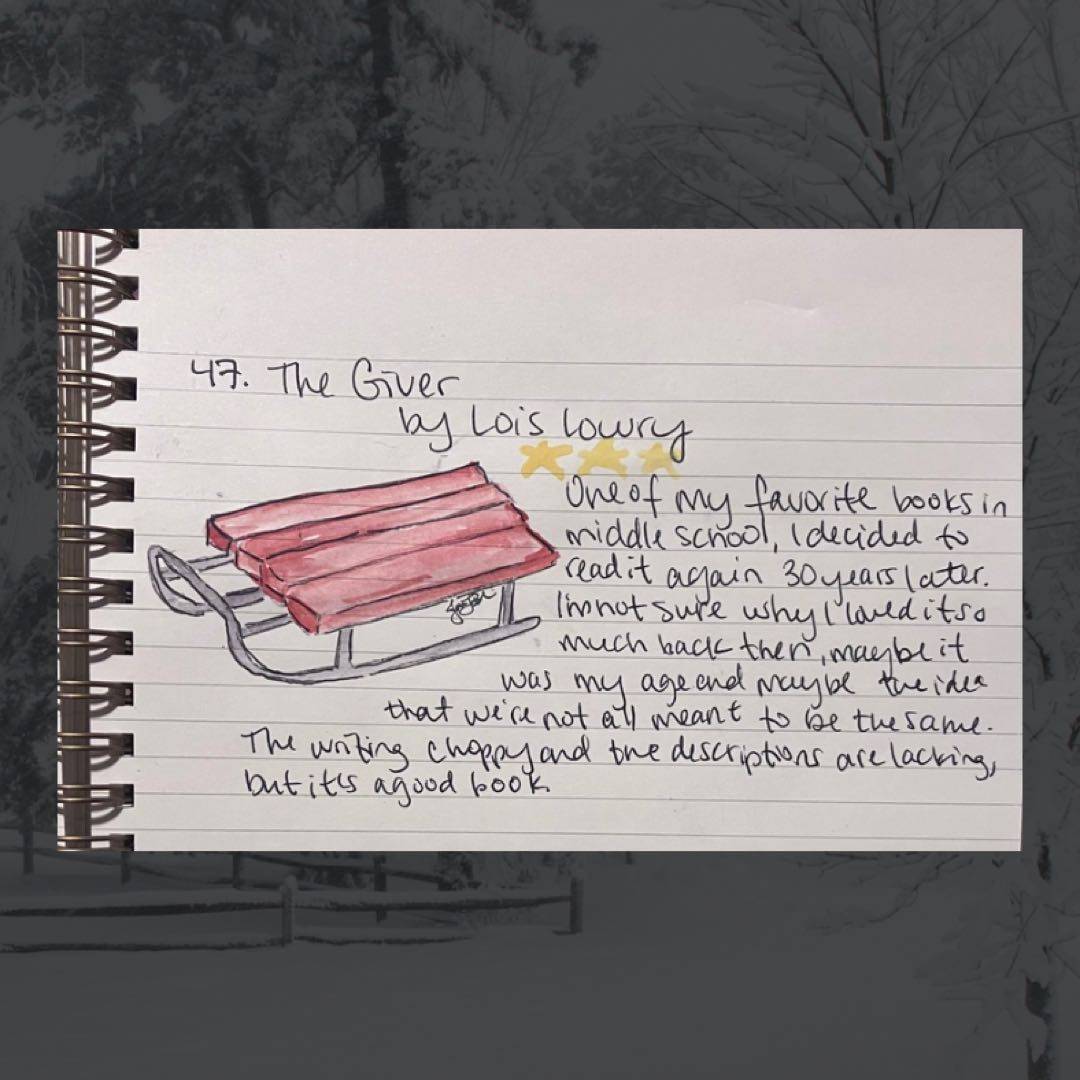 47. The Giver
by Lois Lowry
One of my favorite books in
middle school, I decided to
read it again 30 years later.
I'm not sure why I loved it so
much back then, maybe it
was my age and maybe the idea
that we're not all meant to be the same.
The writing choppy and the descriptions are lacking,
but it's a good book.